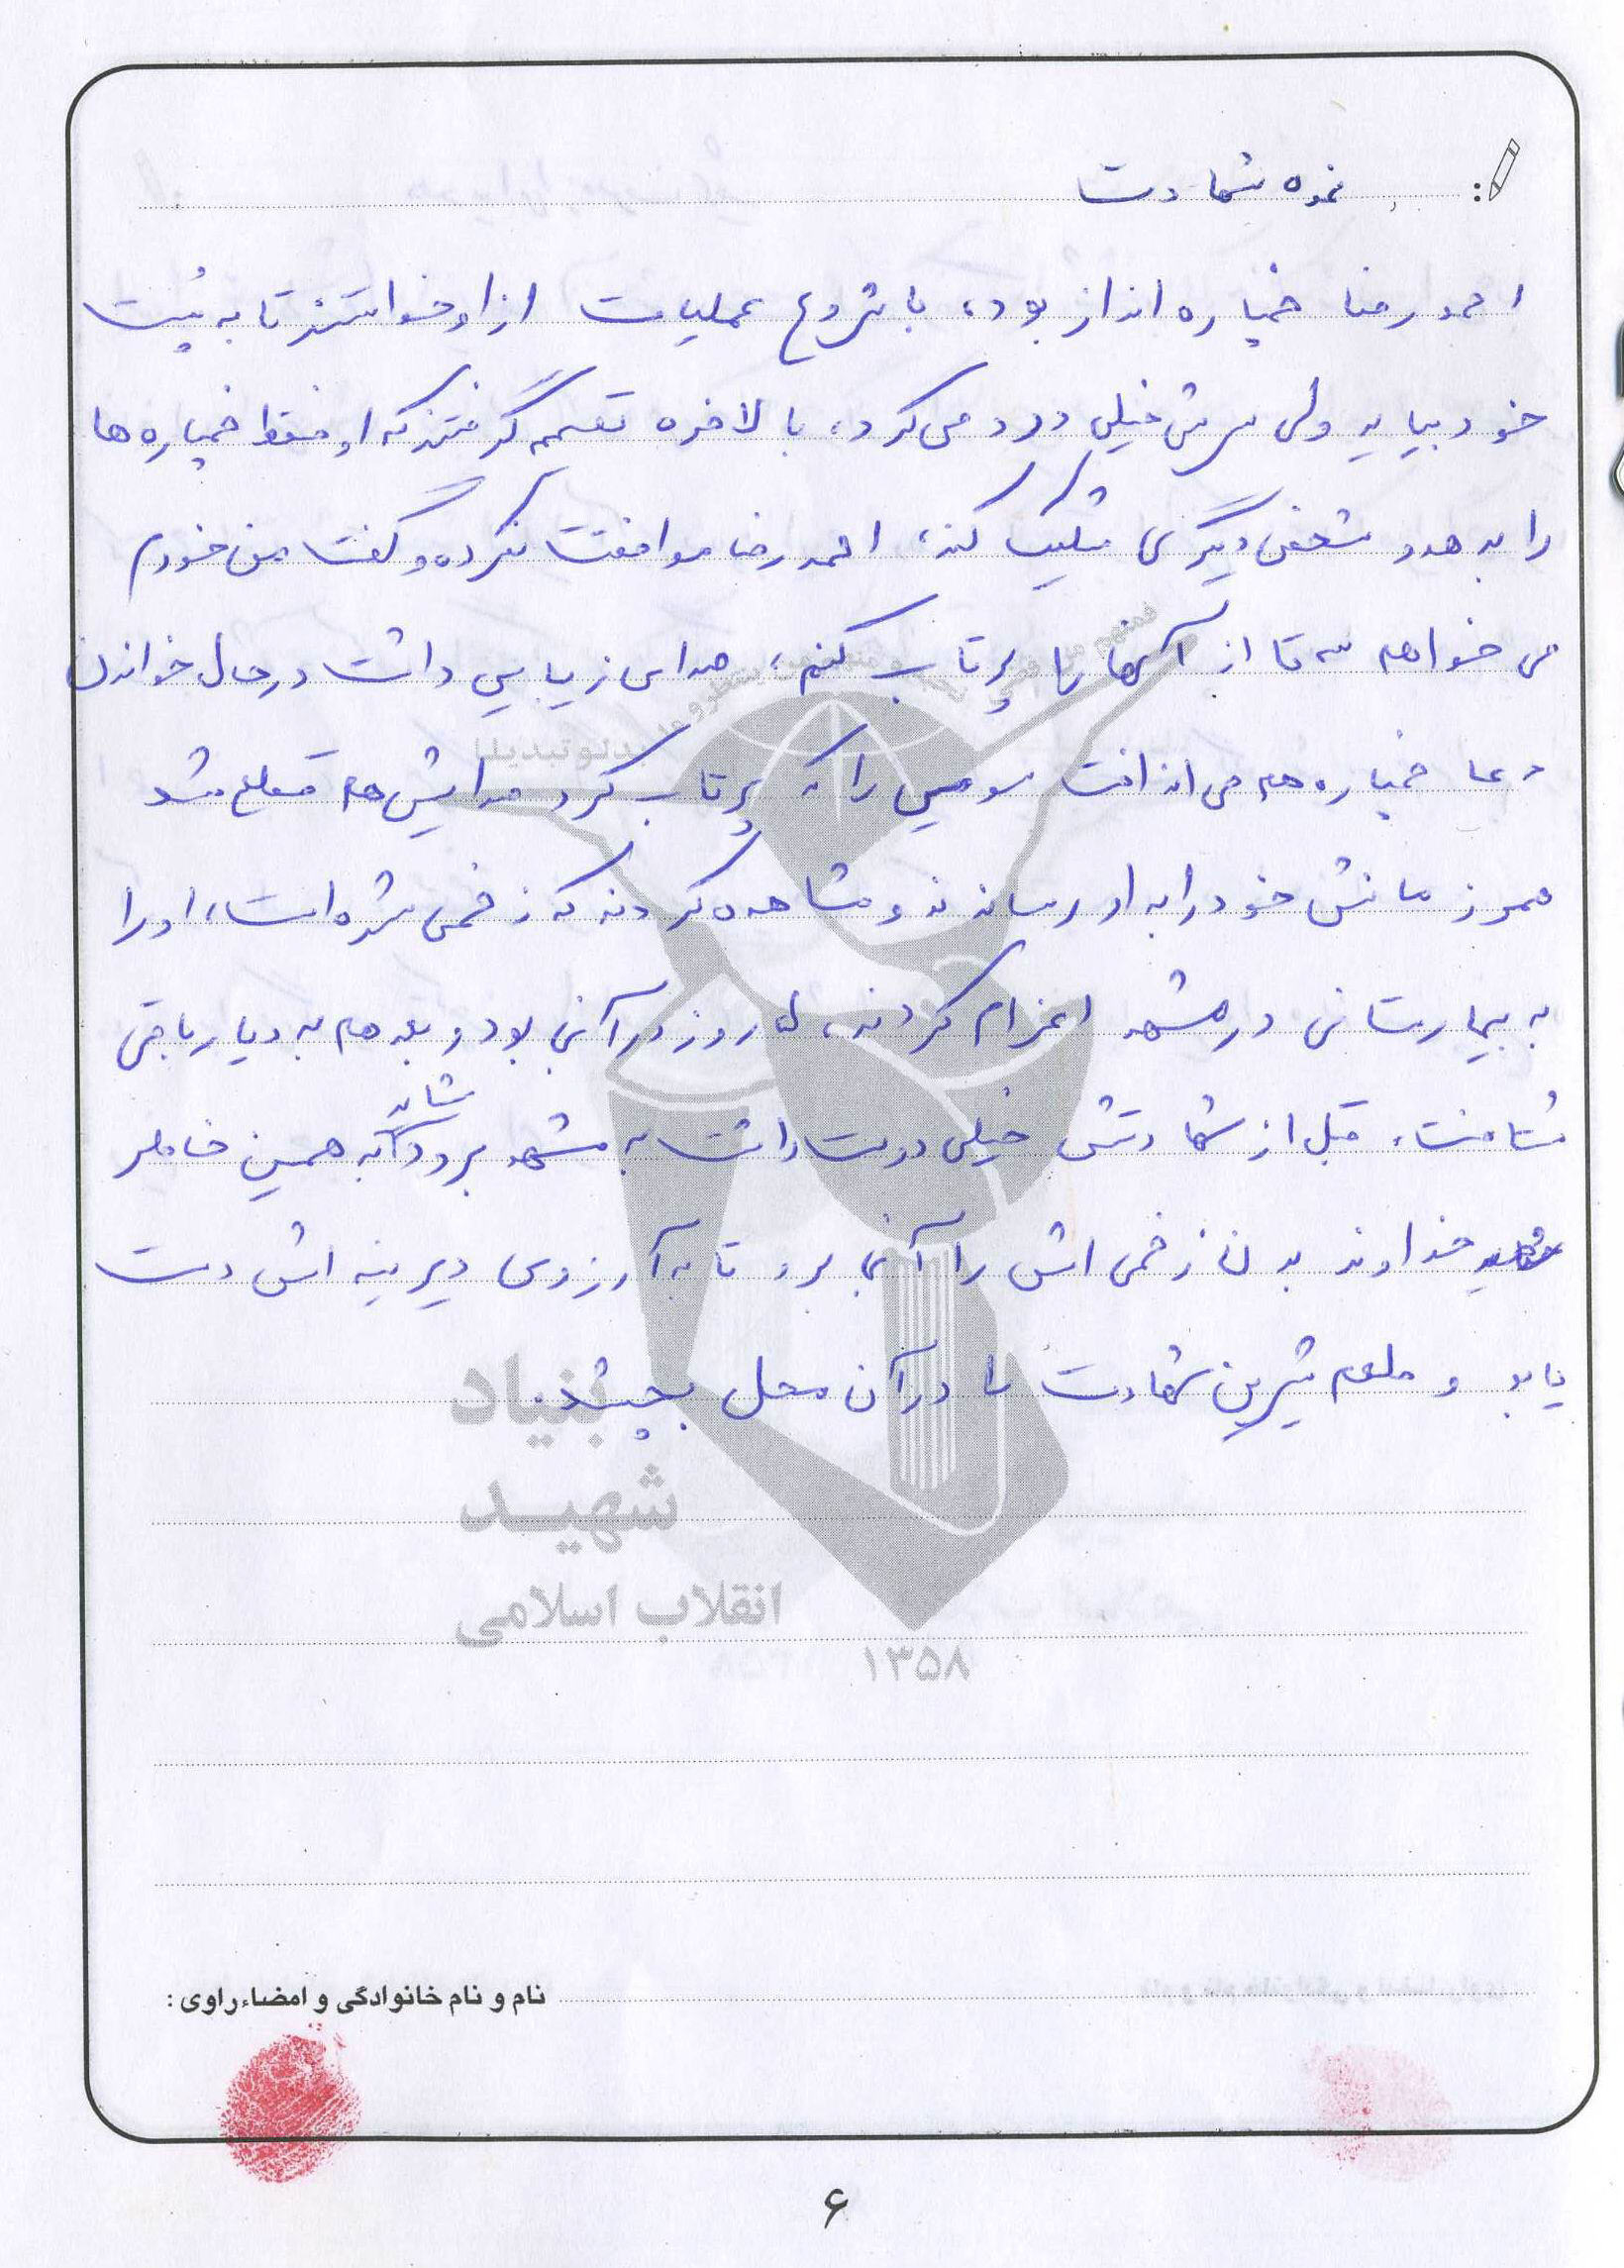 نحوه شهادت
احمد رضا خمپاره انداز بود، با شروع عملیات از او خواستند تا به پشت
خود بیاید ولی سرش خیلی درد می‌کرد، بالاخره تصمیم گرفتند که او فقط خمپاره ها
را بدهد و شخص دیگری شلیک کند، احمد رضا موافقت نکرده و گفت من خودم
می خواهم سه تا از آنها را پرتاب کنم، صدای زیبایی داشت در حال خواندن
دعا خمپاره هم می انداخت سومین را که پرتاب کرد صدایش هم قطع شد
همرزمانش خود را به او رساندند و مشاهده کردند که زخمی شده است، او را
به بیمارستانی در مشهد اعزام کردند، روز در آنجا بود و بعد هم به دیار باقی
شتافت، قبل از شهادتش خیلی دوست داشت به مشهد برود شاید به همین خاطر
خداوند بدن زخمی اش را آنجا برد تا به آرزوی دیرینه اش دست
یابد و طعم شیرین شهادت را در آن محل بچشد.
بنیاد
شهید
انقلاب اسلامی
۱۳۵۸
نام و نام خانوادگی و امضاء راوی :
۶